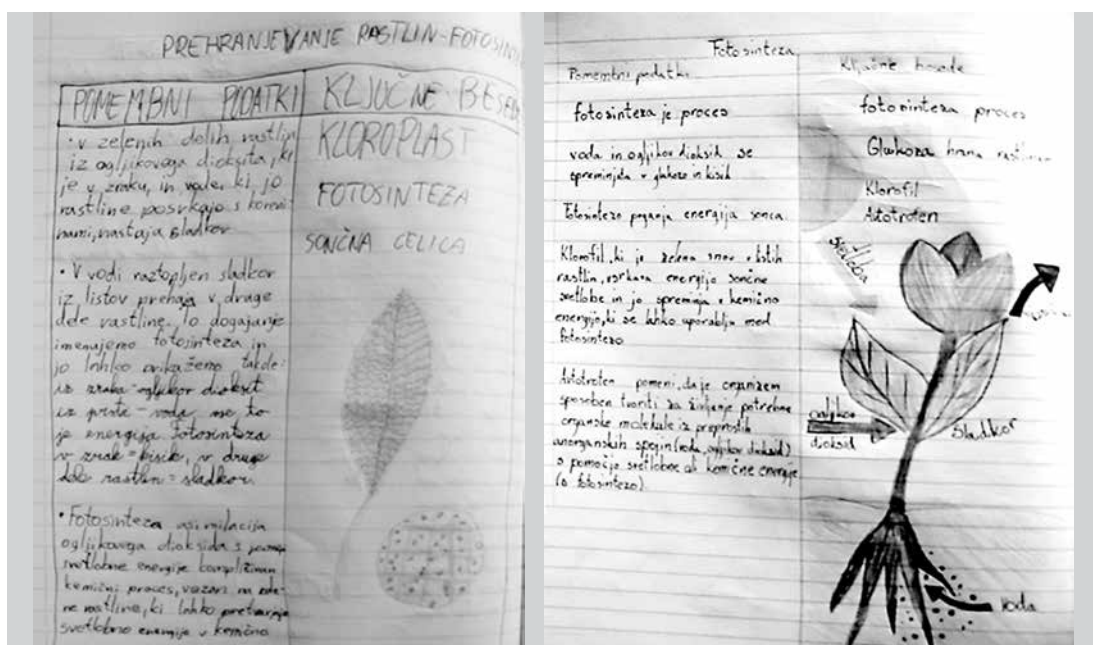 PREHRANJEVANJE RASTLIN-FOTOSIN
POMEMBNI PODATKI
• v zelenih delih rastlin
iz ogljikovega dioksita, ki
je v zraku, in vode, ki, jo
rastline posrkajo s koreni
nami, nastaja sladkor
• V vodi raztopljen sladkor
iz listov prehaja v druge
dele rastline. To dogajanje
imenujemo fotosinteza in
jo lahko prikažemo takde:
iz zraka = ogljikov dioksit
iz prsti = voda, vse to
je energija. Fotosinteza
v zrak = kisik, v druge
dele rastlin = sladkor.
• Fotosinteza asimilacija
ogljikovega dioksida s
svetlobne energije kompliciran
kemični proces, vezan na zele-
ne rastline, ki lahko pretvarja
svetlobno energijo v kemično
KLJUČNE BESEDE
KLOROPLAST
FOTOSINTEZA
SONČNA CELICA
Fotosinteza
Pomembni podatki
fotosinteza je proces
voda in ogljikov dioksid se
spreminjata v glukozo in kisik
Fotosintezo poganja energija sonca.
Klorofil, ki je zelena snov v listih
rastlin, vsrkava energijo sončne
svetlobe in jo spreminja v kemično
energijo, ki se lahko uporablja med
fotosintezo
Avtotrofen pomeni, da je organizem
sposoben tvoriti za življenje potrebne
organske molekule iz preprostih
anorganskih spojin (voda, ogljikov dioksid)
s pomočjo svetlobne ali kemične energije
(s fotosintezo).
Ključne besede
fotosinteza proces
Glukoza hrana rastlinam
Klorofil
Avtotrofen
svetloba
ogljikov
dioksid
sladkor
voda